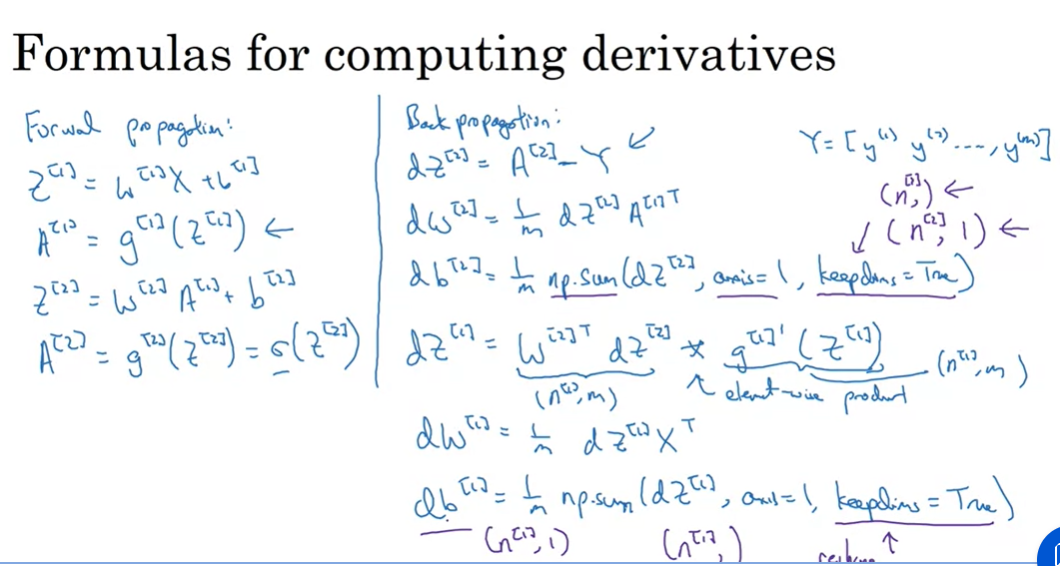 Formulas for computing derivatives
Forwal propagation:
Z^[1] = W^[1]X + b^[1]
A^[1] = g^[1](Z^[1]) ←
Z^[2] = W^[2] A^[1] + b^[2]
A^[2] = g^[2](Z^[2]) = σ(Z^[2])
Back propagation:
dZ^[2] = A^[2] - Y ↙
dW^[2] = 1/m dZ^[2] A^[1]T
db^[2] = 1/m np.sum(dZ^[2], axis=1, keepdims=True)
dZ^[1] = W^[2]T dZ^[2] * g^[1]'(Z^[1])
(n^[1], m) ↖ element-wise product (n^[1], m)
dW^[1] = 1/m dZ^[1] X^T
db^[1] = 1/m np.sum(dZ^[1], axis=1, keepdims=True)
(n^[1], 1) (n^[1],) ↑
Y = [y^(1) y^(2) ..., y^(m)]
(n^[2],) ←
↙ (n^[2], 1) ←